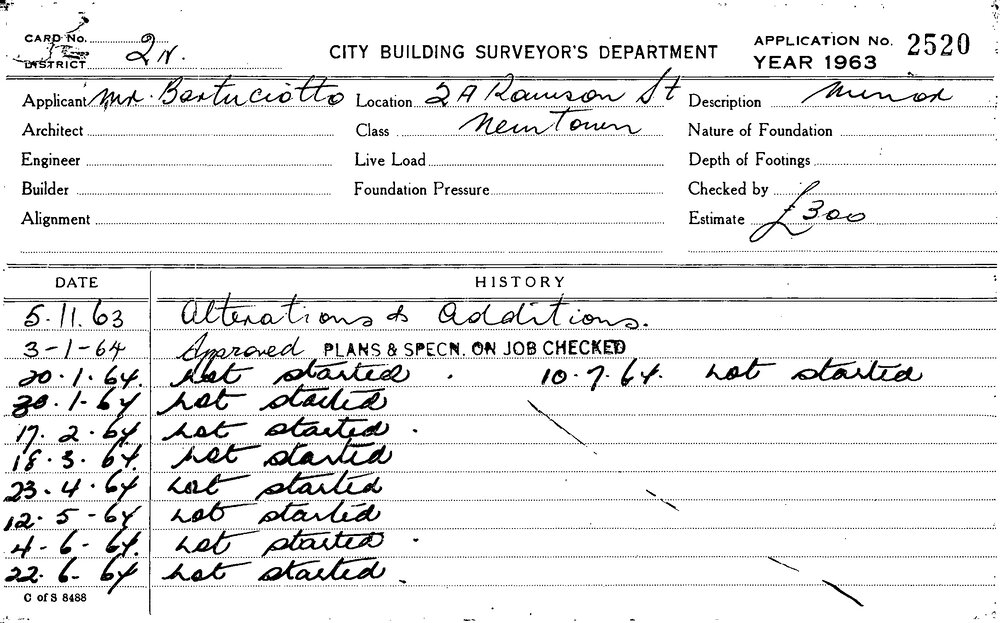 CARD No.
DISTRICT 2N.
CITY BUILDING SURVEYOR'S DEPARTMENT
APPLICATION No. 2520
YEAR 1963
Applicant Mr. Bertuciotto Location 2A Rawson St Description Minor
Architect Class Newtown Nature of Foundation
Engineer Live Load Depth of Footings
Builder Foundation Pressure Checked by
Alignment Estimate £300
DATE HISTORY
5.11.63 Alterations & Additions.
3-1-64 Approved PLANS & SPECN. ON JOB CHECKED
20.1.64. Not started . 10.7.64. Not started
30.1.64 Not started
17.2.64 Not started .
18.3.64. Not started
23.4.64 Not started
12.5-64 Not started
4-6-64. Not started .
22.6-64 Not started .
C of S 8488